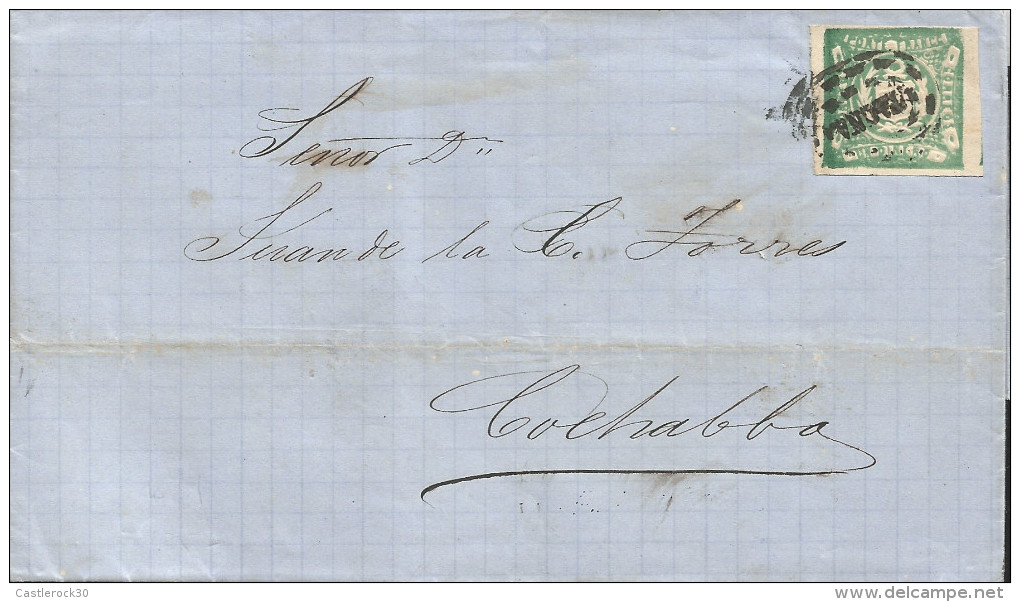 Señor D"
Juan de la C. Torres
Cochabba
Castlerock30
delcampe.net